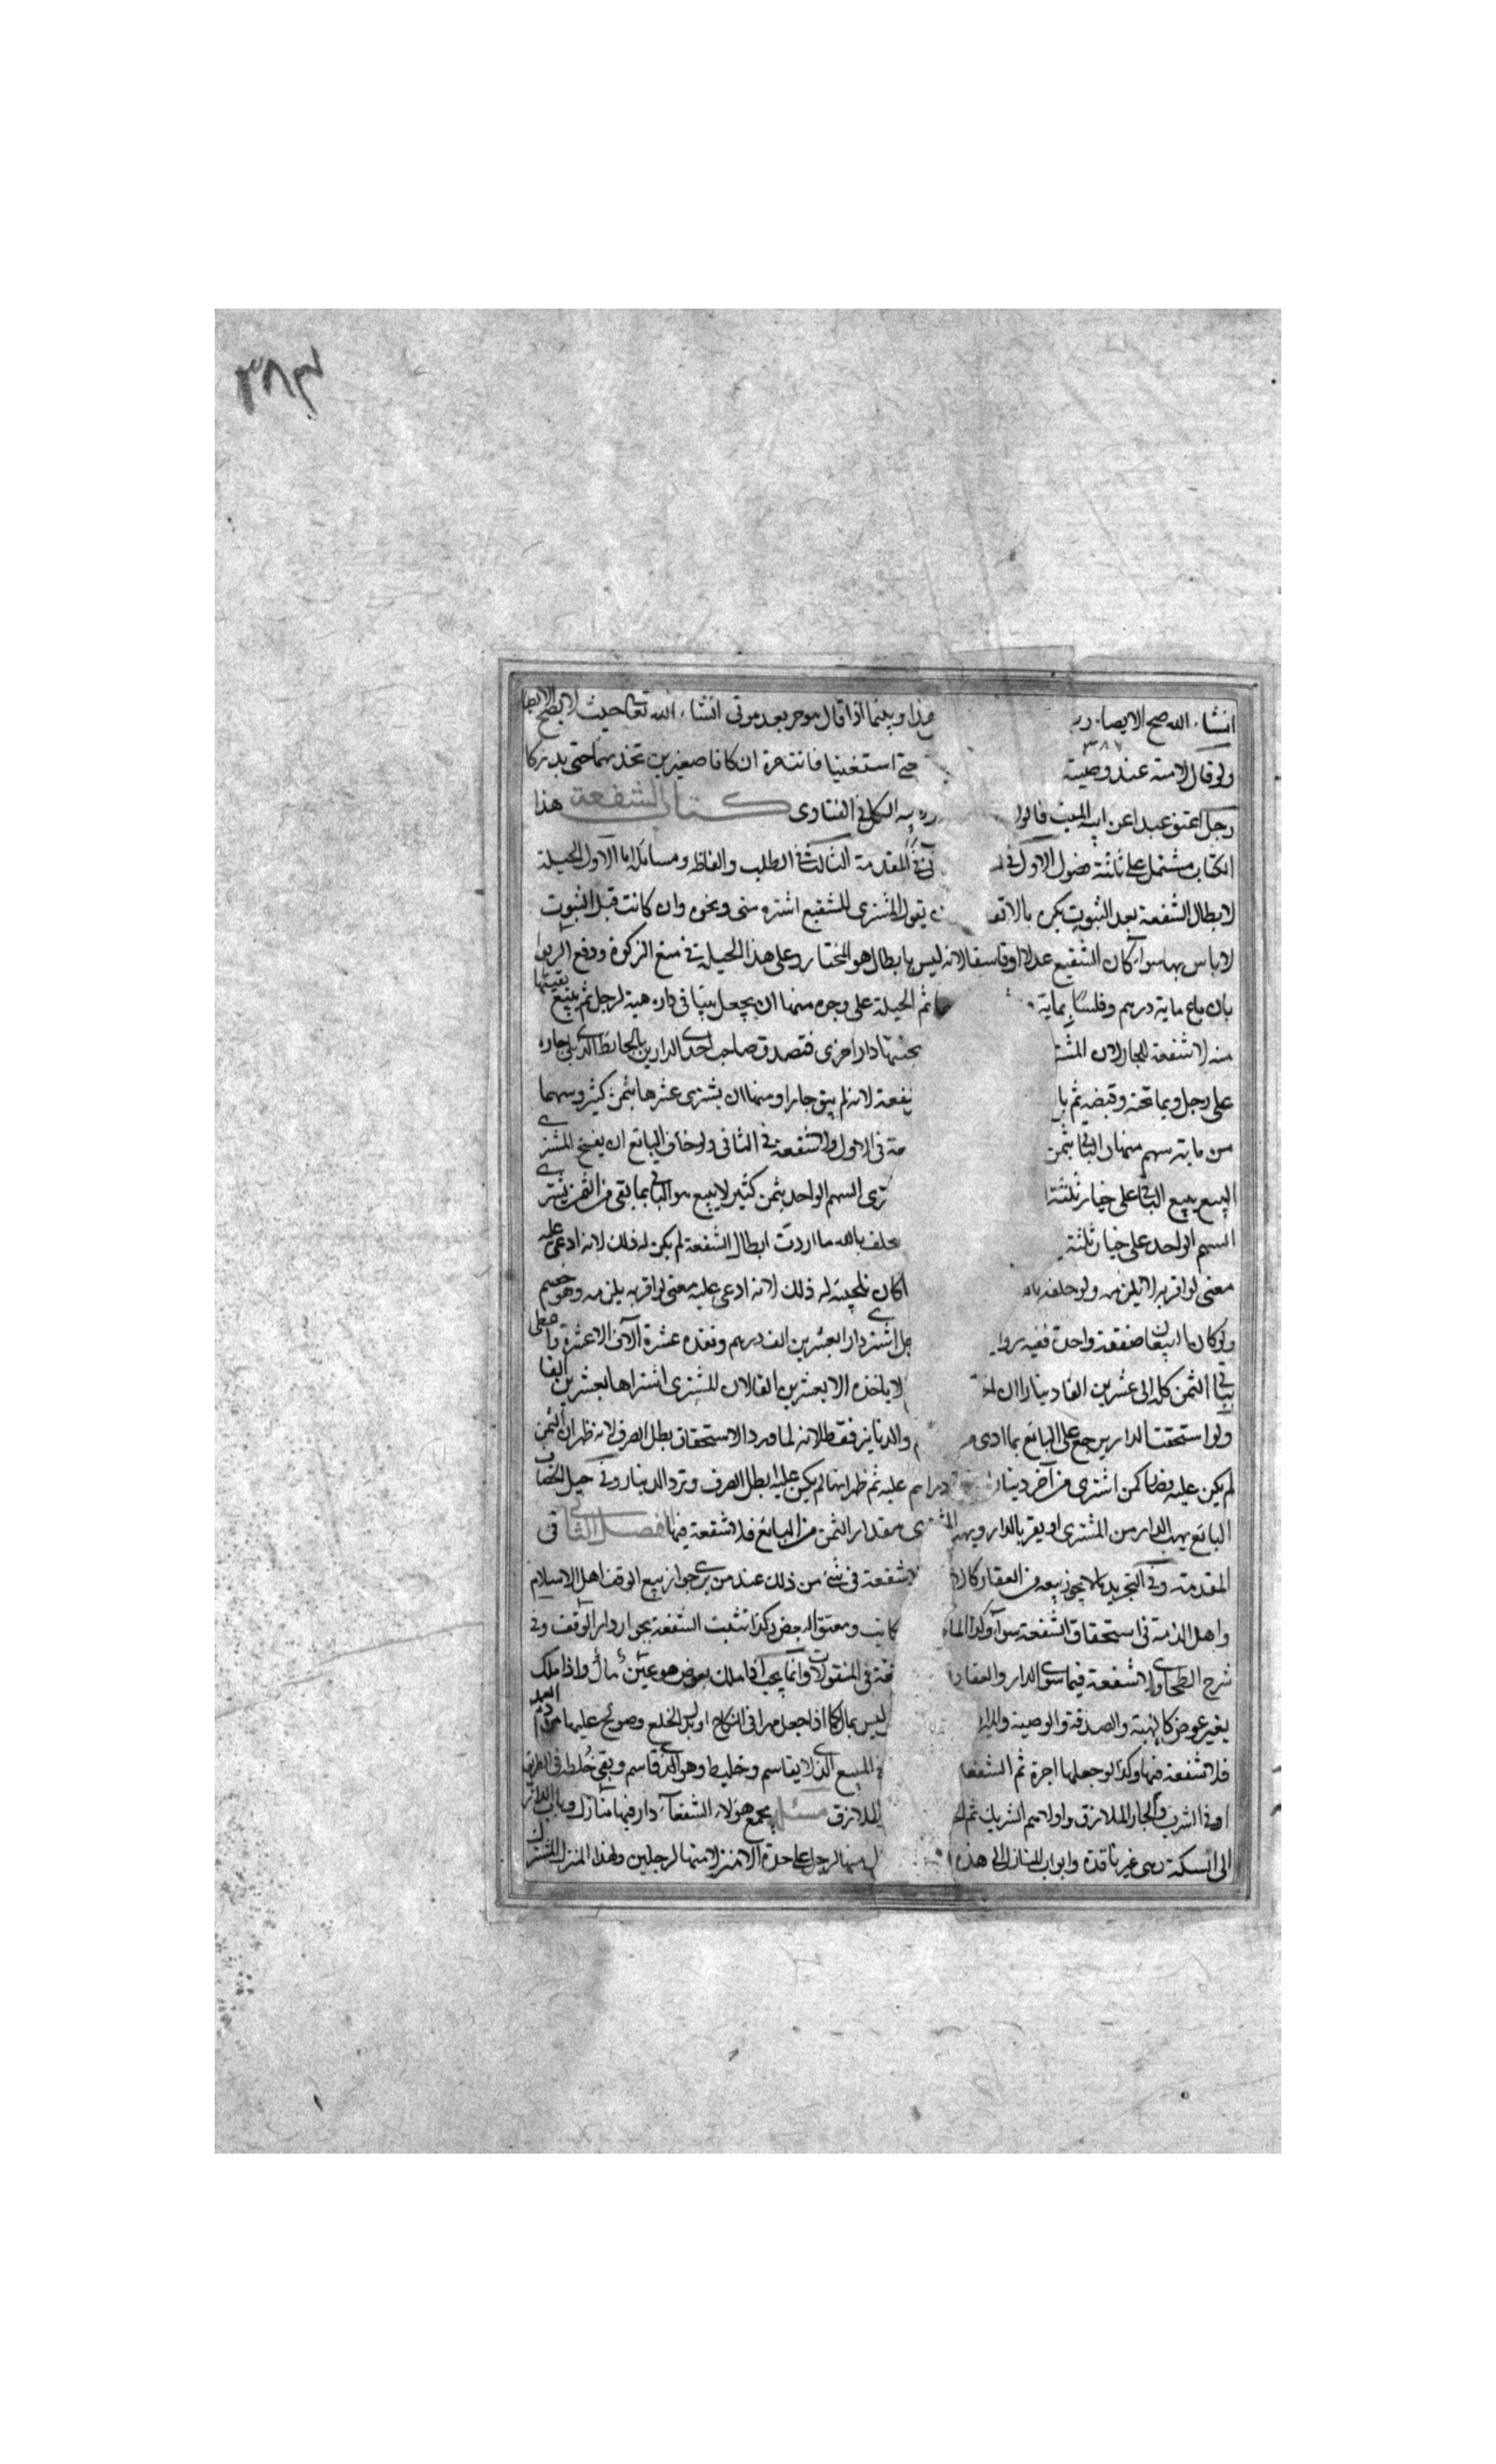 ٣٨٣
انشاء الله صح الايصا هذا وبينما اذا قال هو حر بعد موتى انشاء الله تعا حيث لا يصح الايصا
٣٨٧
ولو قال لامته عند وصيته حتى استغنيا فانت حرة ان كانا صغيرين تخدمهما حتى يدركا
رجل اعتق عبدا عن ابيه الميت قالوا الكل فى الفتاوى كتاب الشفعة هذا
الكتاب مشتمل على ثلثة فصول الاول فى المقدمة الثالث فى الطلب والفاظه ومسائله اما الاول الحيلة
لابطال الشفعة بعد الثبوت يكره بالاتفـ يقول المشترى للشفيع اشتره منى ونحوه وان كانت قبل الثبوت
لا باس بها سواء كان الشفيع عدلا او فاسقا لانه ليس بابطال هو المختار وعلى هذا الحيلة فى منع الزكوة ودفع الربوا
بان باع ماية درهم وفلسا بماية ثم الحيلة على وجوه منها ان يجعل بيتا فى داره هبة لرجل ثم يبيع بقيتها
منه لا شفعة للجار لان المشتـ بجنبها دار اخرى فتصدق صاحب احدى الدارين بالحائط الذى يلى جاره
على رجل وبما تحته وقبضه ثم با ـفعة لانه لم يبق جارا ومنها ان يشترى عشرها بثمن كثير وسهما
من ماية سهم منها الباقى بثمن ـة فى الاول ولا شفعة فى الثانى ولو خاف البائع ان يفسخ المشترى
البيع يبيع الباقى على خيار ثلثة ـترى السهم الواحد بثمن كثير لا يبيع هو الباقى بما بقى من الثمن يشترى
السهم الواحد على خيار ثلثة يحلف بالله ما اردت ابطال الشفعة لم يكن له ذلك لانه ادعى عليه
معنى لو اقر به لا يلزمه ولو حلفه بالله كان تلجية له ذلك لانه ادعى عليه معنى لو اقر به يلزمه وهو خصم
ولو كان البيعان صفقة واحدة ففيه روا ـجل اشترى دارا بعشرين الف درهم ونقده عشرة آلاف الا عشرة واعطى
بباقى الثمن كله الى عشرين الفا دينارا ان لا ياخذه الا بعشرين الفا لان المشترى اشتراها بعشرين الفا
ولو استحقت الدار يرجع على البائع بما ادى والدنانير فقط لانه لما ورد الاستحقاق بطل الصرف لانه ظهر ان الثمن
لم يكن عليه فصار كمن اشترى من آخر دينارا دراهم عليه ثم ظهر انها لم يكن عليه ابطل الصرف وترد الدينار وفى حيل الخصاف
البائع يهب الدار من المشترى او يقر بالدار ويهب المشترى مقدار الثمن من البائع فلا شفعة فيها الفصل الثانى فى
المقدمة وفى التجريد ما لا يجوز بيعه من العقار كالا لا شفعة فى شئ من ذلك عند من يرى جواز بيع الوقف اهل الاسلام
واهل الذمة فى استحقاق الشفعة سواء وكذا الما كاتب ومعتق البعض وكذا تثبت الشفعة بجوار دار الوقف وفى
شرح الطحاوى لا شفعة فيما سوى الدار والعقار ـفعة فى المنقولات وانما يجب اذا ملك بعوض هو عين مال واذا ملك
بغير عوض كالهبة والصدقة والوصية والميرا ليس بمال كما اذا جعل مهرا فى النكاح او بدل الخلع وصولح عليها من دم العمد
فلا شفعة فيها وكذا لو جعلها اجرة ثم الشفعا المبيع الذى لا يقاسم وخليط وهو الذى قاسم وبقى خلطة فى الطريق
او فى الشرب والجار الملازق واولاهم الشريك ثم الـ الملازق مسئلة يجمع هؤلاء الشفعاء دار فيها منازل وباب الدار
الى السكة وهى غير نافذة وابواب المنازل الى هذه منها لرجل على حدة الا منزلا منها لرجلين ولهذا المنزل المشترك